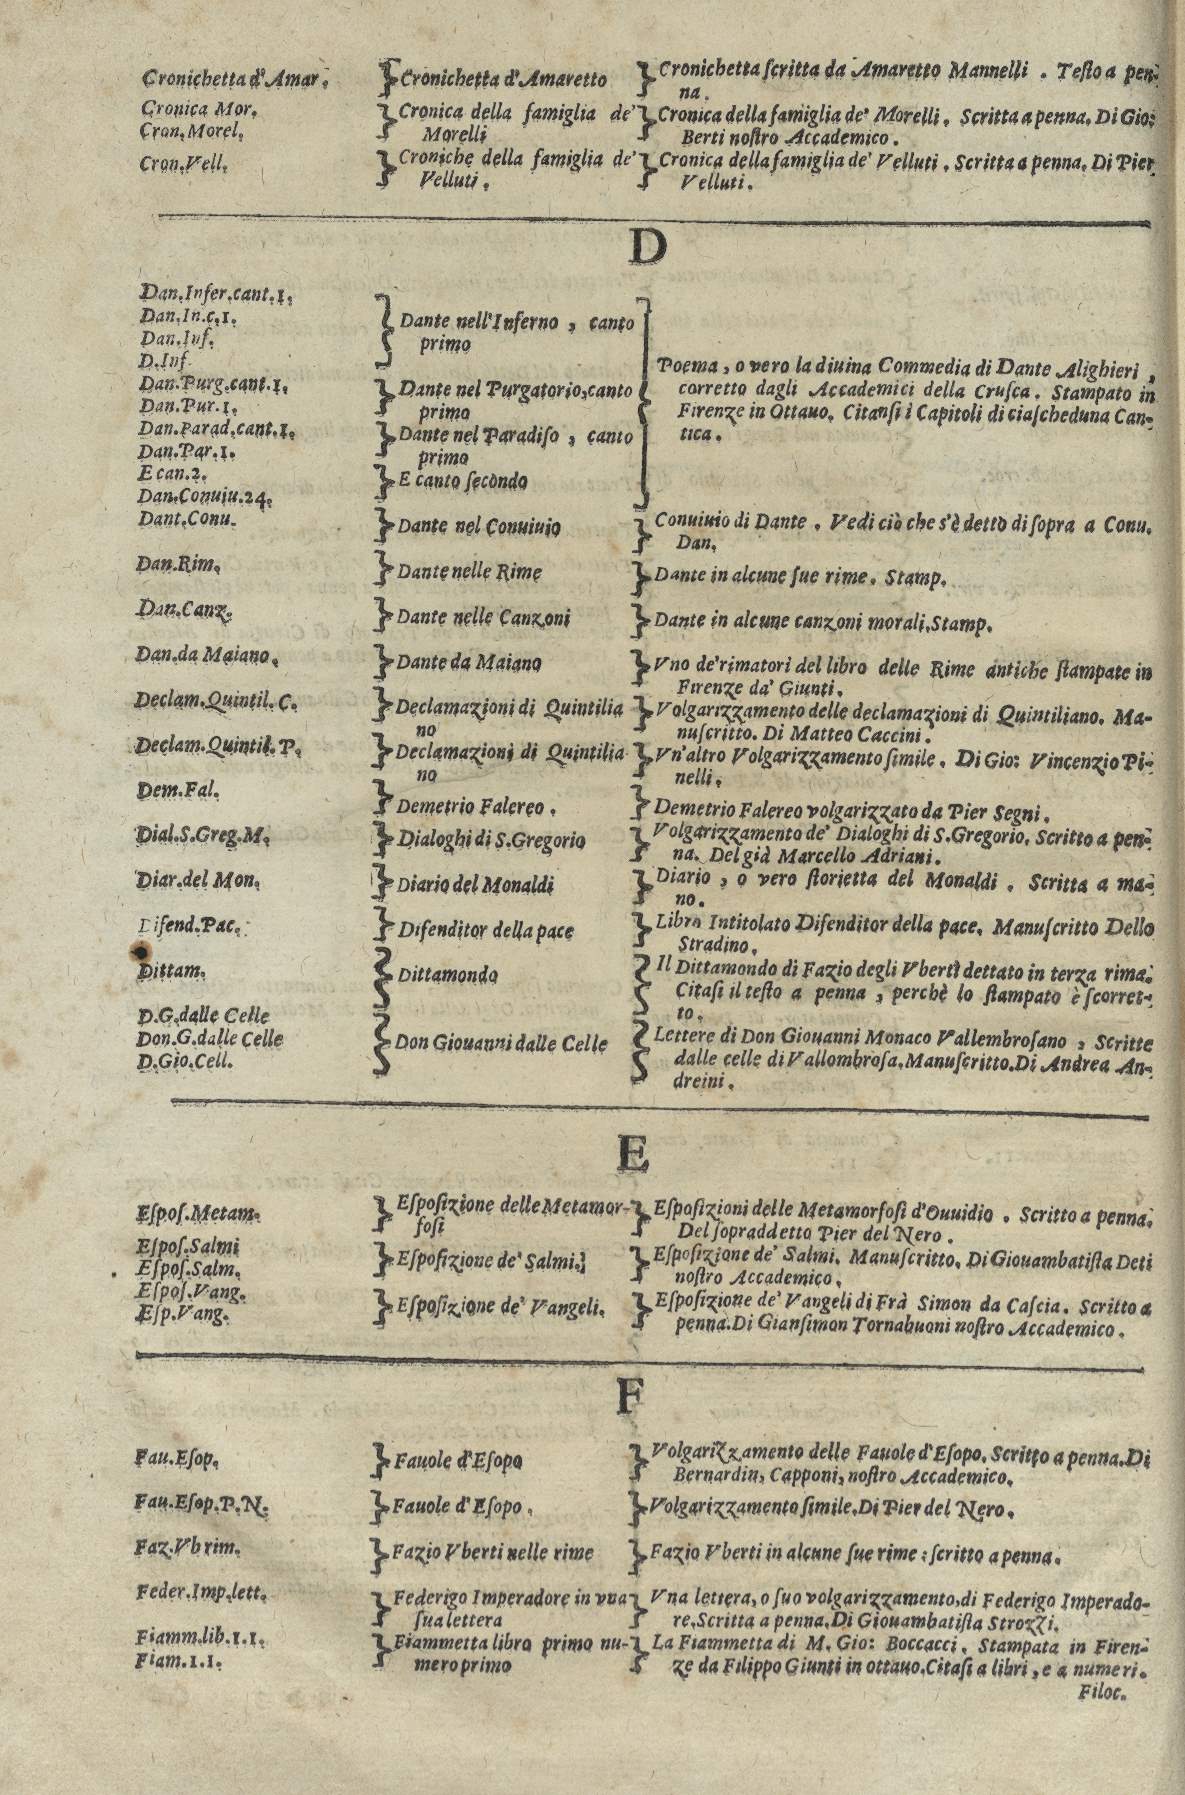 Cronichetta d'Amar. Cronichetta d'Amaretto Cronichetta ſcritta da Amaretto Mannelli. Teſto a pen-
na.
Cronica Mor. Cronica della famiglia de' Cronica della famiglia de' Morelli. Scritta a penna. Di Gio:
Cron. Morel. Morelli Berti noſtro Accademico.
Cron. Vell. Croniche della famiglia de' Cronica della famiglia de' Velluti. Scritta a penna. Di Pier
Velluti. Velluti.
D
Dan. Infer. cant. 1.
Dan. In. c. 1. Dante nell'Inferno, canto
Dan. Inf. primo
D. Inf. Poema, o vero la diuina Commedia di Dante Alighieri,
Dan. Purg. cant. 1. Dante nel Purgatorio, canto corretto dagli Accademici della Cruſca. Stampato in
Dan. Pur. 1. primo Firenze in Ottauo. Citanſi i Capitoli di ciaſcheduna Can-
Dan. Parad. cant. 1. Dante nel Paradiſo, canto tica.
Dan. Par. 1. primo
E can. 2. E canto ſecondo
Dan. Conuiu. 24.
Dant. Conu. Dante nel Conuiuio Conuiuio di Dante. Vedi ciò che s'è detto di ſopra a Conu.
Dan.
Dan. Rim. Dante nelle Rime Dante in alcune ſue rime. Stamp.
Dan. Canz. Dante nelle Canzoni Dante in alcune canzoni morali. Stamp.
Dan. da Maiano. Dante da Maiano Vno de' rimatori del libro delle Rime antiche ſtampate in
Firenze da' Giunti.
Declam. Quintil. C. Declamazioni di Quintilia Volgarizzamento delle declamazioni di Quintiliano. Ma-
no nuſcritto. Di Matteo Caccini.
Declam. Quintil. P. Declamazioni di Quintilia Vn'altro Volgarizzamento ſimile. Di Gio: Vincenzio Pi-
no nelli.
Dem. Fal. Demetrio Falereo. Demetrio Falereo volgarizzato da Pier Segni.
Dial. S. Greg. M. Dialoghi di S. Gregorio Volgarizzamento de' Dialoghi di S. Gregorio. Scritto a pen-
na. Del già Marcello Adriani.
Diar. del Mon. Diario del Monaldi Diario, o vero ſtorietta del Monaldi. Scritta a ma-
no.
Difend. Pac. Difenditor della pace Libro Intitolato Difenditor della pace. Manuſcritto Dello
Stradino.
Dittam. Dittamondo Il Dittamondo di Fazio degli Vberti dettato in terza rima.
Citaſi il teſto a penna, perchè lo ſtampato è ſcorret-
to.
D. G. dalle Celle
Don. G. dalle Celle Don Giouanni dalle Celle Lettere di Don Giouanni Monaco Vallembroſano, Scritte
D. Gio. Cell. dalle celle di Vallombroſa. Manuſcritto. Di Andrea An-
dreini.
E
Eſpoſ. Metam. Eſpoſizione delle Metamor- Eſpoſizioni delle Metamorfoſi d'Ouuidio. Scritto a penna.
foſi Del ſopraddetto Pier del Nero.
Eſpoſ. Salmi Eſpoſizione de' Salmi. Eſpoſizione de' Salmi. Manuſcritto. Di Giouambatiſta Deti
Eſpoſ. Salm. noſtro Accademico.
Eſpoſ. Vang. Eſpoſizione de' Vangeli. Eſpoſizione de' Vangeli di Frà Simon da Caſcia. Scritto a
Eſp. Vang. penna. Di Gianſimon Tornabuoni noſtro Accademico.
F
Fau. Eſop. Fauole d'Eſopo Volgarizzamento delle Fauole d'Eſopo. Scritto a penna. Di
Bernardin, Capponi, noſtro Accademico.
Fau. Eſop. P. N. Fauole d'Eſopo. Volgarizzamento ſimile. Di Pier del Nero.
Faz. Vb rim. Fazio Vberti nelle rime Fazio Vberti in alcune ſue rime: ſcritto a penna.
Feder. Imp. lett. Federigo Imperadore in vna Vna lettera, o ſuo volgarizzamento, di Federigo Imperado-
sua lettera re. Scritta a penna. Di Giouambatiſta Strozzi.
Fiamm. lib. 1. 1. Fiammetta libro primo nu- La Fiammetta di M. Gio: Boccacci. Stampata in Firen-
Fiam. 1. 1. mero primo ze da Filippo Giunti in ottauo. Citaſi a libri, e a numeri.
Filoc.